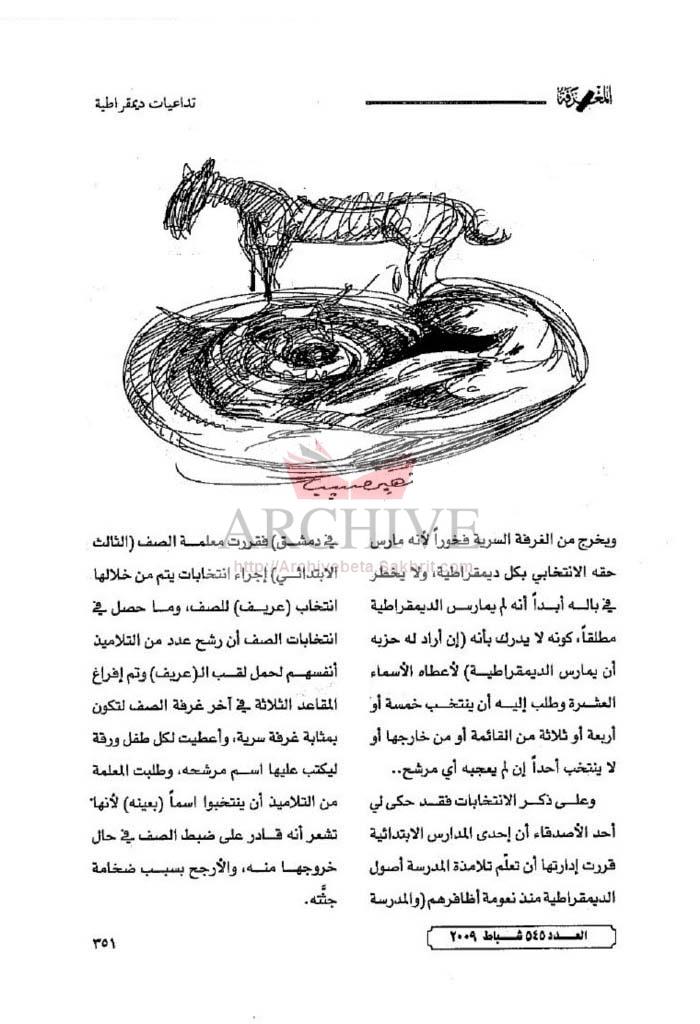 المعرفة
تداعيات ديمقراطية
زهير حسيب
ARCHIVE
http://Archivebeta.Sakhrit.com
ويخرج من الغرفة السرية فخوراً لأنه مارس
حقه الانتخابي بكل ديمقراطية، ولا يخطر
في بالــه أبــداً أنه لم يمارس الديمقراطية
مطلقاً، كونه لا يدرك بأنه (إن أراد له حزبه
أن يمارس الديمقراطيــة) لأعطاه الأسماء
العشــرة وطلب إليــه أن ينتخــب خمسة أو
أربعة أو ثلاثة من القائمة أو من خارجها أو
لا ينتخب أحداً إن لم يعجبه أي مرشح..
وعلــى ذكــر الانتخابات فقــد حكى لي
أحد الأصدقاء أن إحدى المدارس الابتدائية
قررت إدارتها أن تعلّم تلامذة المدرسة أصول
الديمقراطية منذ نعومة أظافرهم (والمدرسة
في دمشــق) فقررت معلمــة الصف (الثالث
الابتدائــي) إجراء انتخابات يتم من خلالها
انتخاب (عريــف) للصف، ومــا حصل في
انتخابات الصف أن رشح عدد من التلاميذ
أنفسهــم لحمل لقب الـ(عريف) وتم إفراغ
المقاعد الثلاثة في آخر غرفة الصف لتكون
بمثابة غرفة سرية، وأعطيت لكل طفل ورقة
ليكتب عليها اســم مرشحه، وطلبت المعلمة
من التلاميذ أن ينتخبوا اسماً (بعينه) لأنها
تشعر أنه قــادر على ضبط الصف في حال
خروجهــا منــه، والأرجح بسبب ضخامة
جثَّته.
العــدد ٥٤٥ شــباط ٢٠٠٩
٣٥١